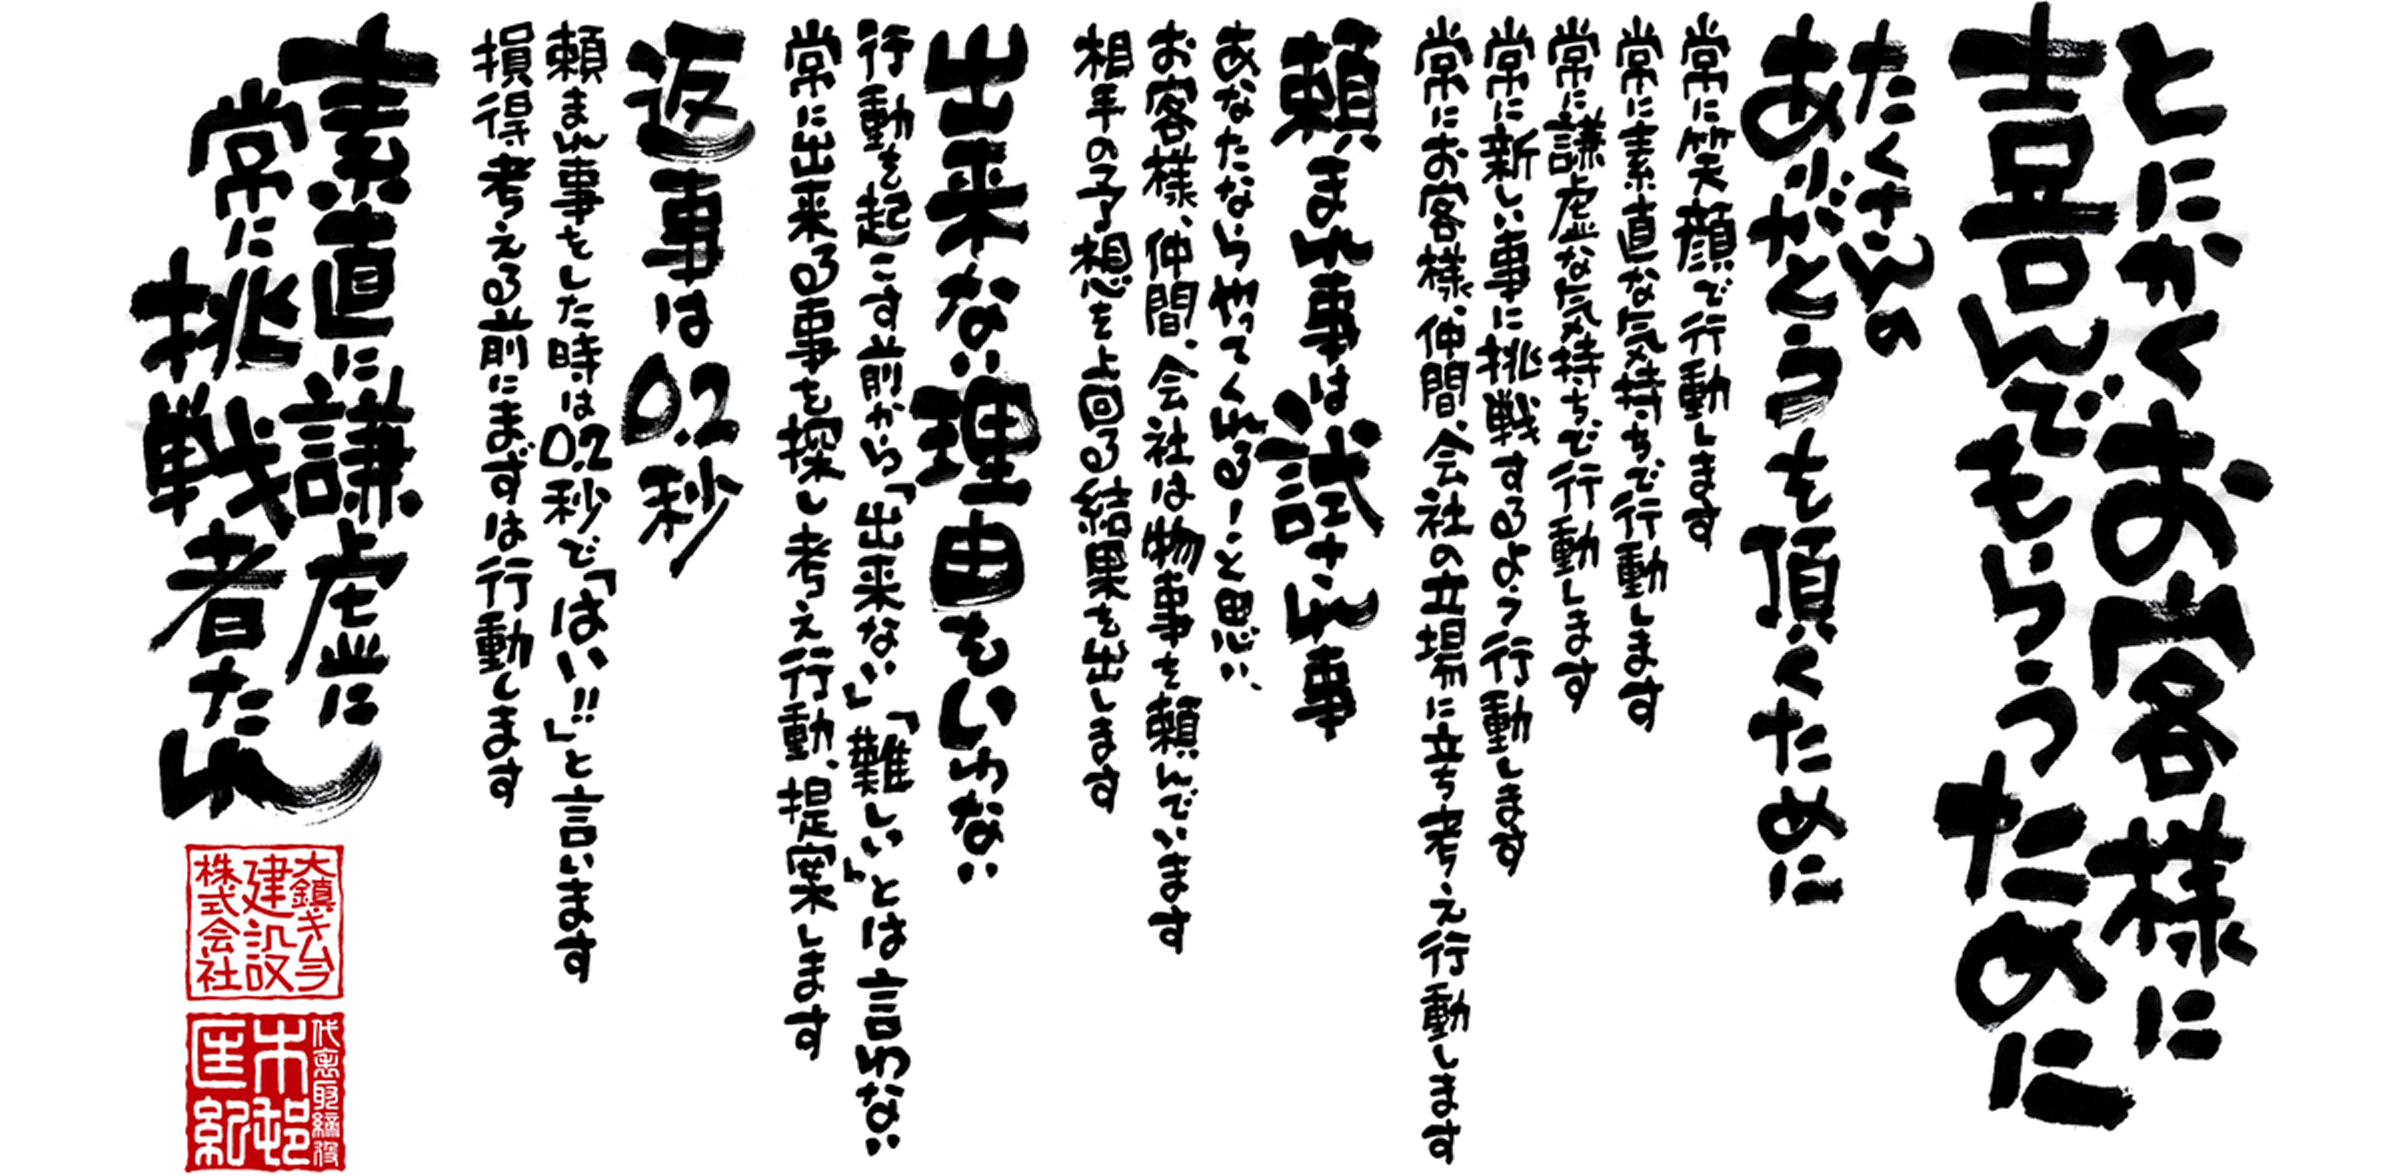 とにかくお客様に
喜んでもらうために
たくさんの
ありがとうを頂くために
常に笑顔で行動します
常に素直な気持ちで行動します
常に謙虚な気持ちで行動します
常に新しい事に挑戦するよう行動します
常にお客様、仲間、会社の立場に立ち考え行動します
頼まれ事は試され事
あなたならやってくれる！と思い、
お客様、仲間、会社は物事を頼んでいます
相手の予想を上回る結果を出します
出来ない理由をいわない
行動を起こす前から「出来ない」「難しい」とは言わない
常に出来る事を探し考え行動、提案します
返事は0.2秒
頼まれ事をした時は0.2秒で「はい!!」と言います
損得考える前にまずは行動します
素直に謙虚に
常に挑戦者たれ
大鎮キムラ
建設
株式会社
代表取締役
木村
匡紀